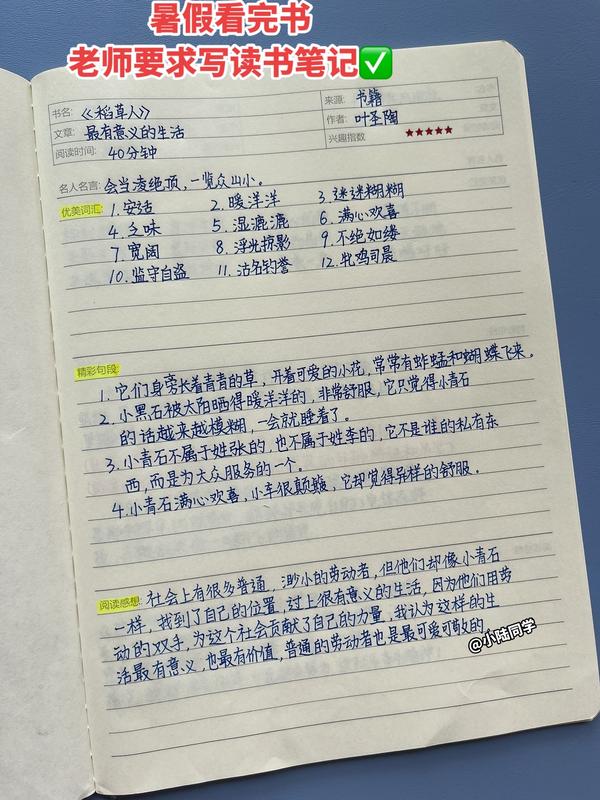 暑假看完书
老师要求写读书笔记✅
书名: 《稻草人》
来源: 书籍
文章: 最有意义的生活
作者: 叶圣陶
阅读时间: 40分钟
兴趣指数 ★★★★★
名人名言: 会当凌绝顶,一览众山小。
优美词汇: 1.安适 2.暖洋洋 3.迷迷糊糊
4.乏味 5.湿漉漉 6.满心欢喜
7.宽阔 8.浮光掠影 9.不绝如缕
10.监守自盗 11.沽名钓誉 12.牝鸡司晨
精彩句段:
1.它们身旁长着青青的草,开着可爱的小花,常常有蚱蜢和蝴蝶飞来。
2.小黑石被太阳晒得暖洋洋的,非常舒服,它只觉得小青石
的话越来越模糊,一会就睡着了。
3.小青石不属于姓张的,也不属于姓李的,它不是谁的私有东
西,而是为大众服务的一个。
4.小青石满心欢喜,小车很颠簸,它却觉得异样的舒服。
阅读感想: 社会上有很多普通,渺小的劳动者,但他们却像小青石
一样,找到了自己的位置,过上很有意义的生活,因为他们用劳
动的双手,为这个社会贡献了自己的力量,我认为这样的生
活最有意义,也最有价值,普通的劳动者也是最可爱可敬的
@小陆同学